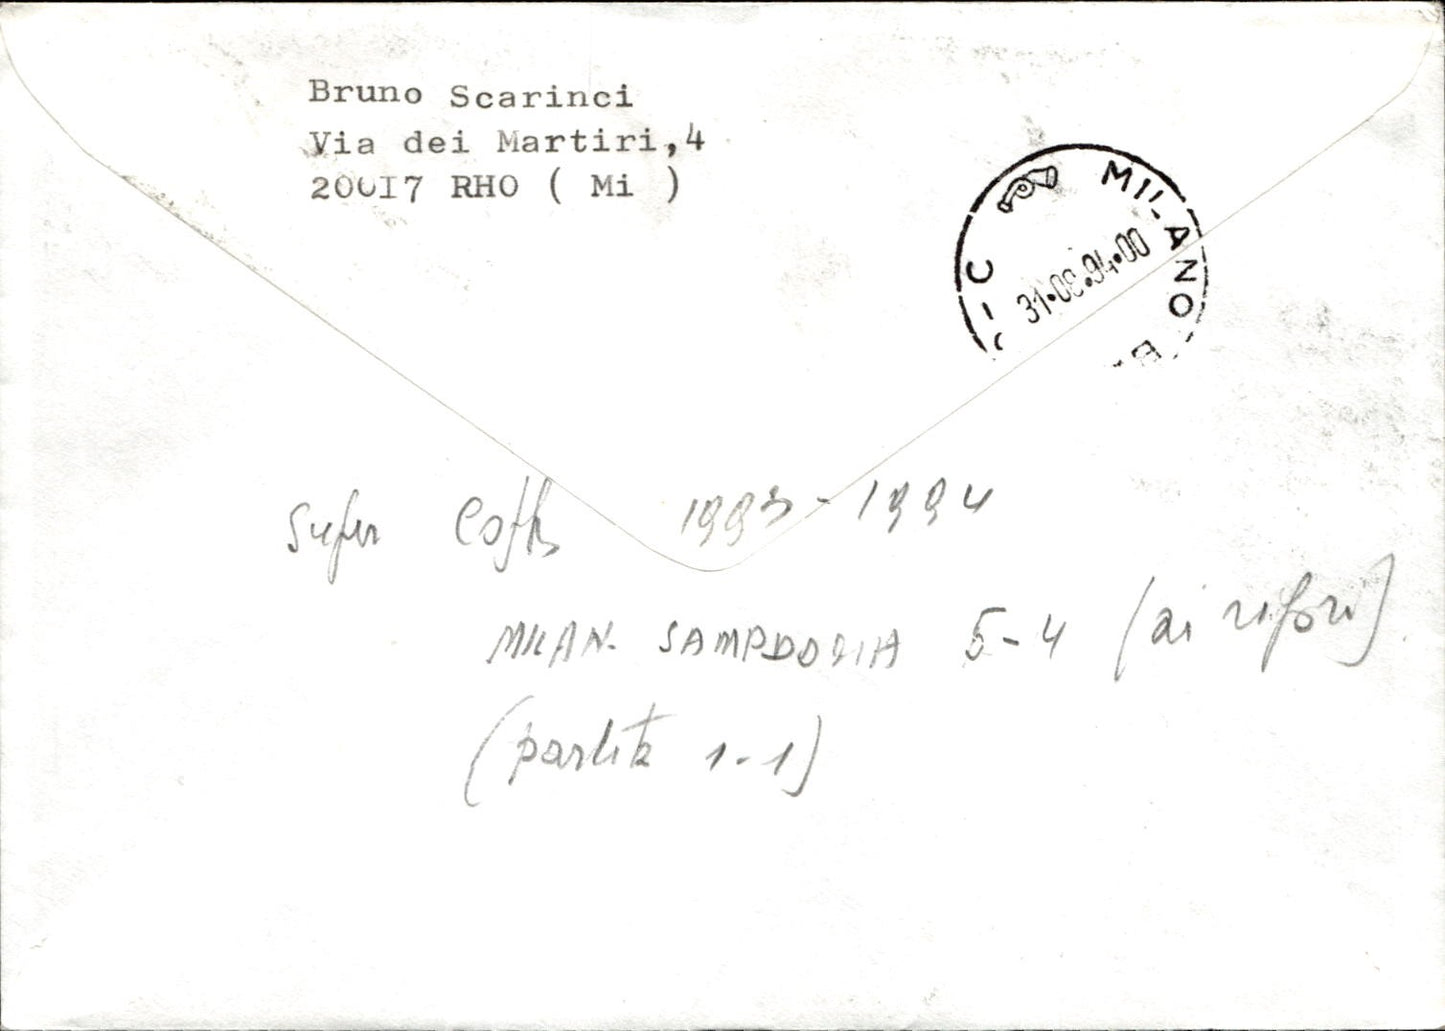 Bruno Scarinci
Via dei Martiri,4
20017 RHO ( Mi )
MILANO
31•08•94•00
Super Coppa 1993-1994
MILAN-SAMPDORIA 5-4 (ai rigori)
(partita 1-1)